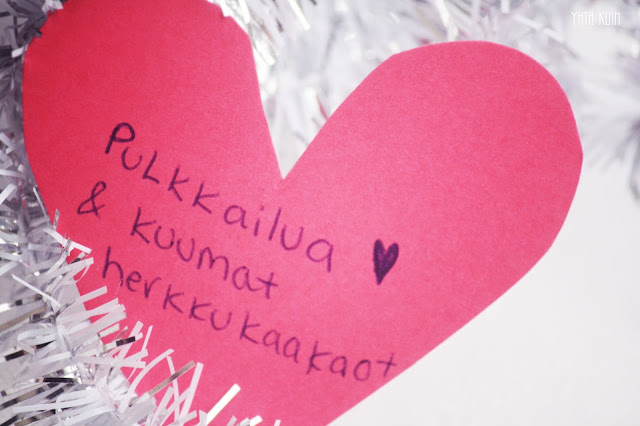 YHTÄ KUIN
PULKKailua
& kuumat
herkkukaakaot